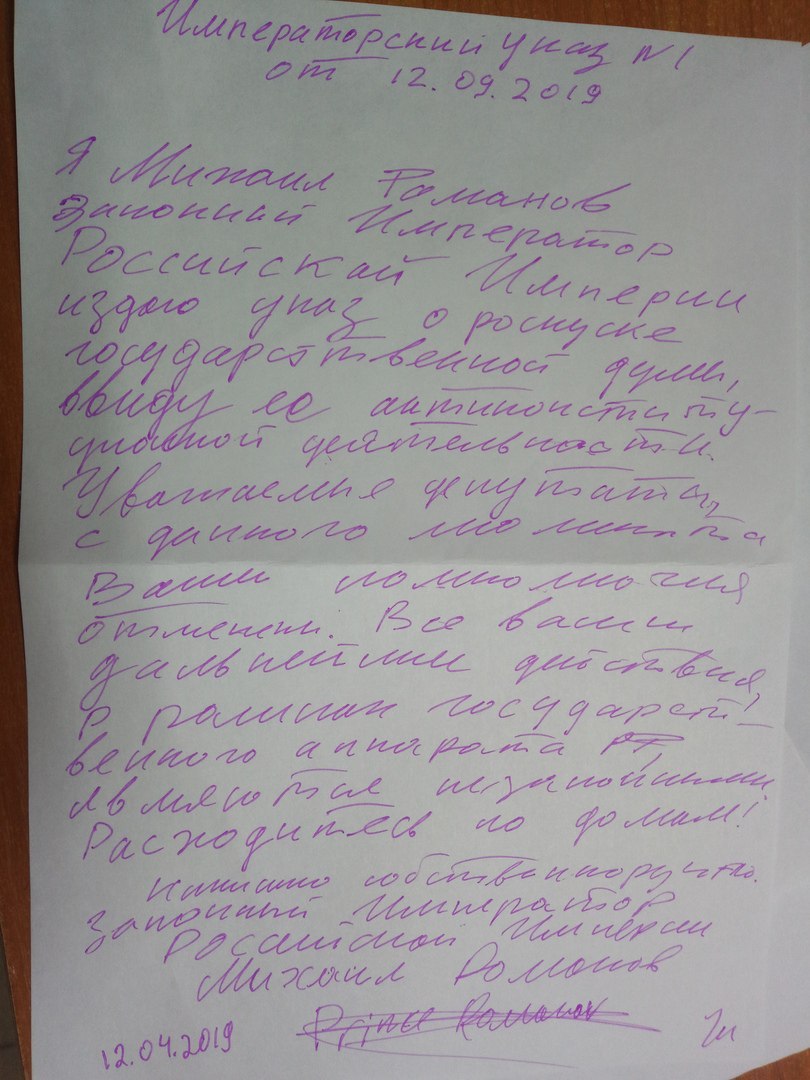 Императорский указ N1
от 12.09.2019
Я Михаил Романов
Законный Император
Российской Империи
издаю указ о роспуске
государственной думы,
ввиду ее антиконститу-
ционной деятельности.
Уважаемые депутаты,
с данного момента
Ваши полномочия
отменены. Все ваши
дальнейшие действия,
в рамках государст-
венного аппарата РФ,
являются незаконными
Расходитесь по домам!
Написано собственноручно.
Законный Император
Российской Империи
Михаил Романов
Prince Romanov
12.04.2019